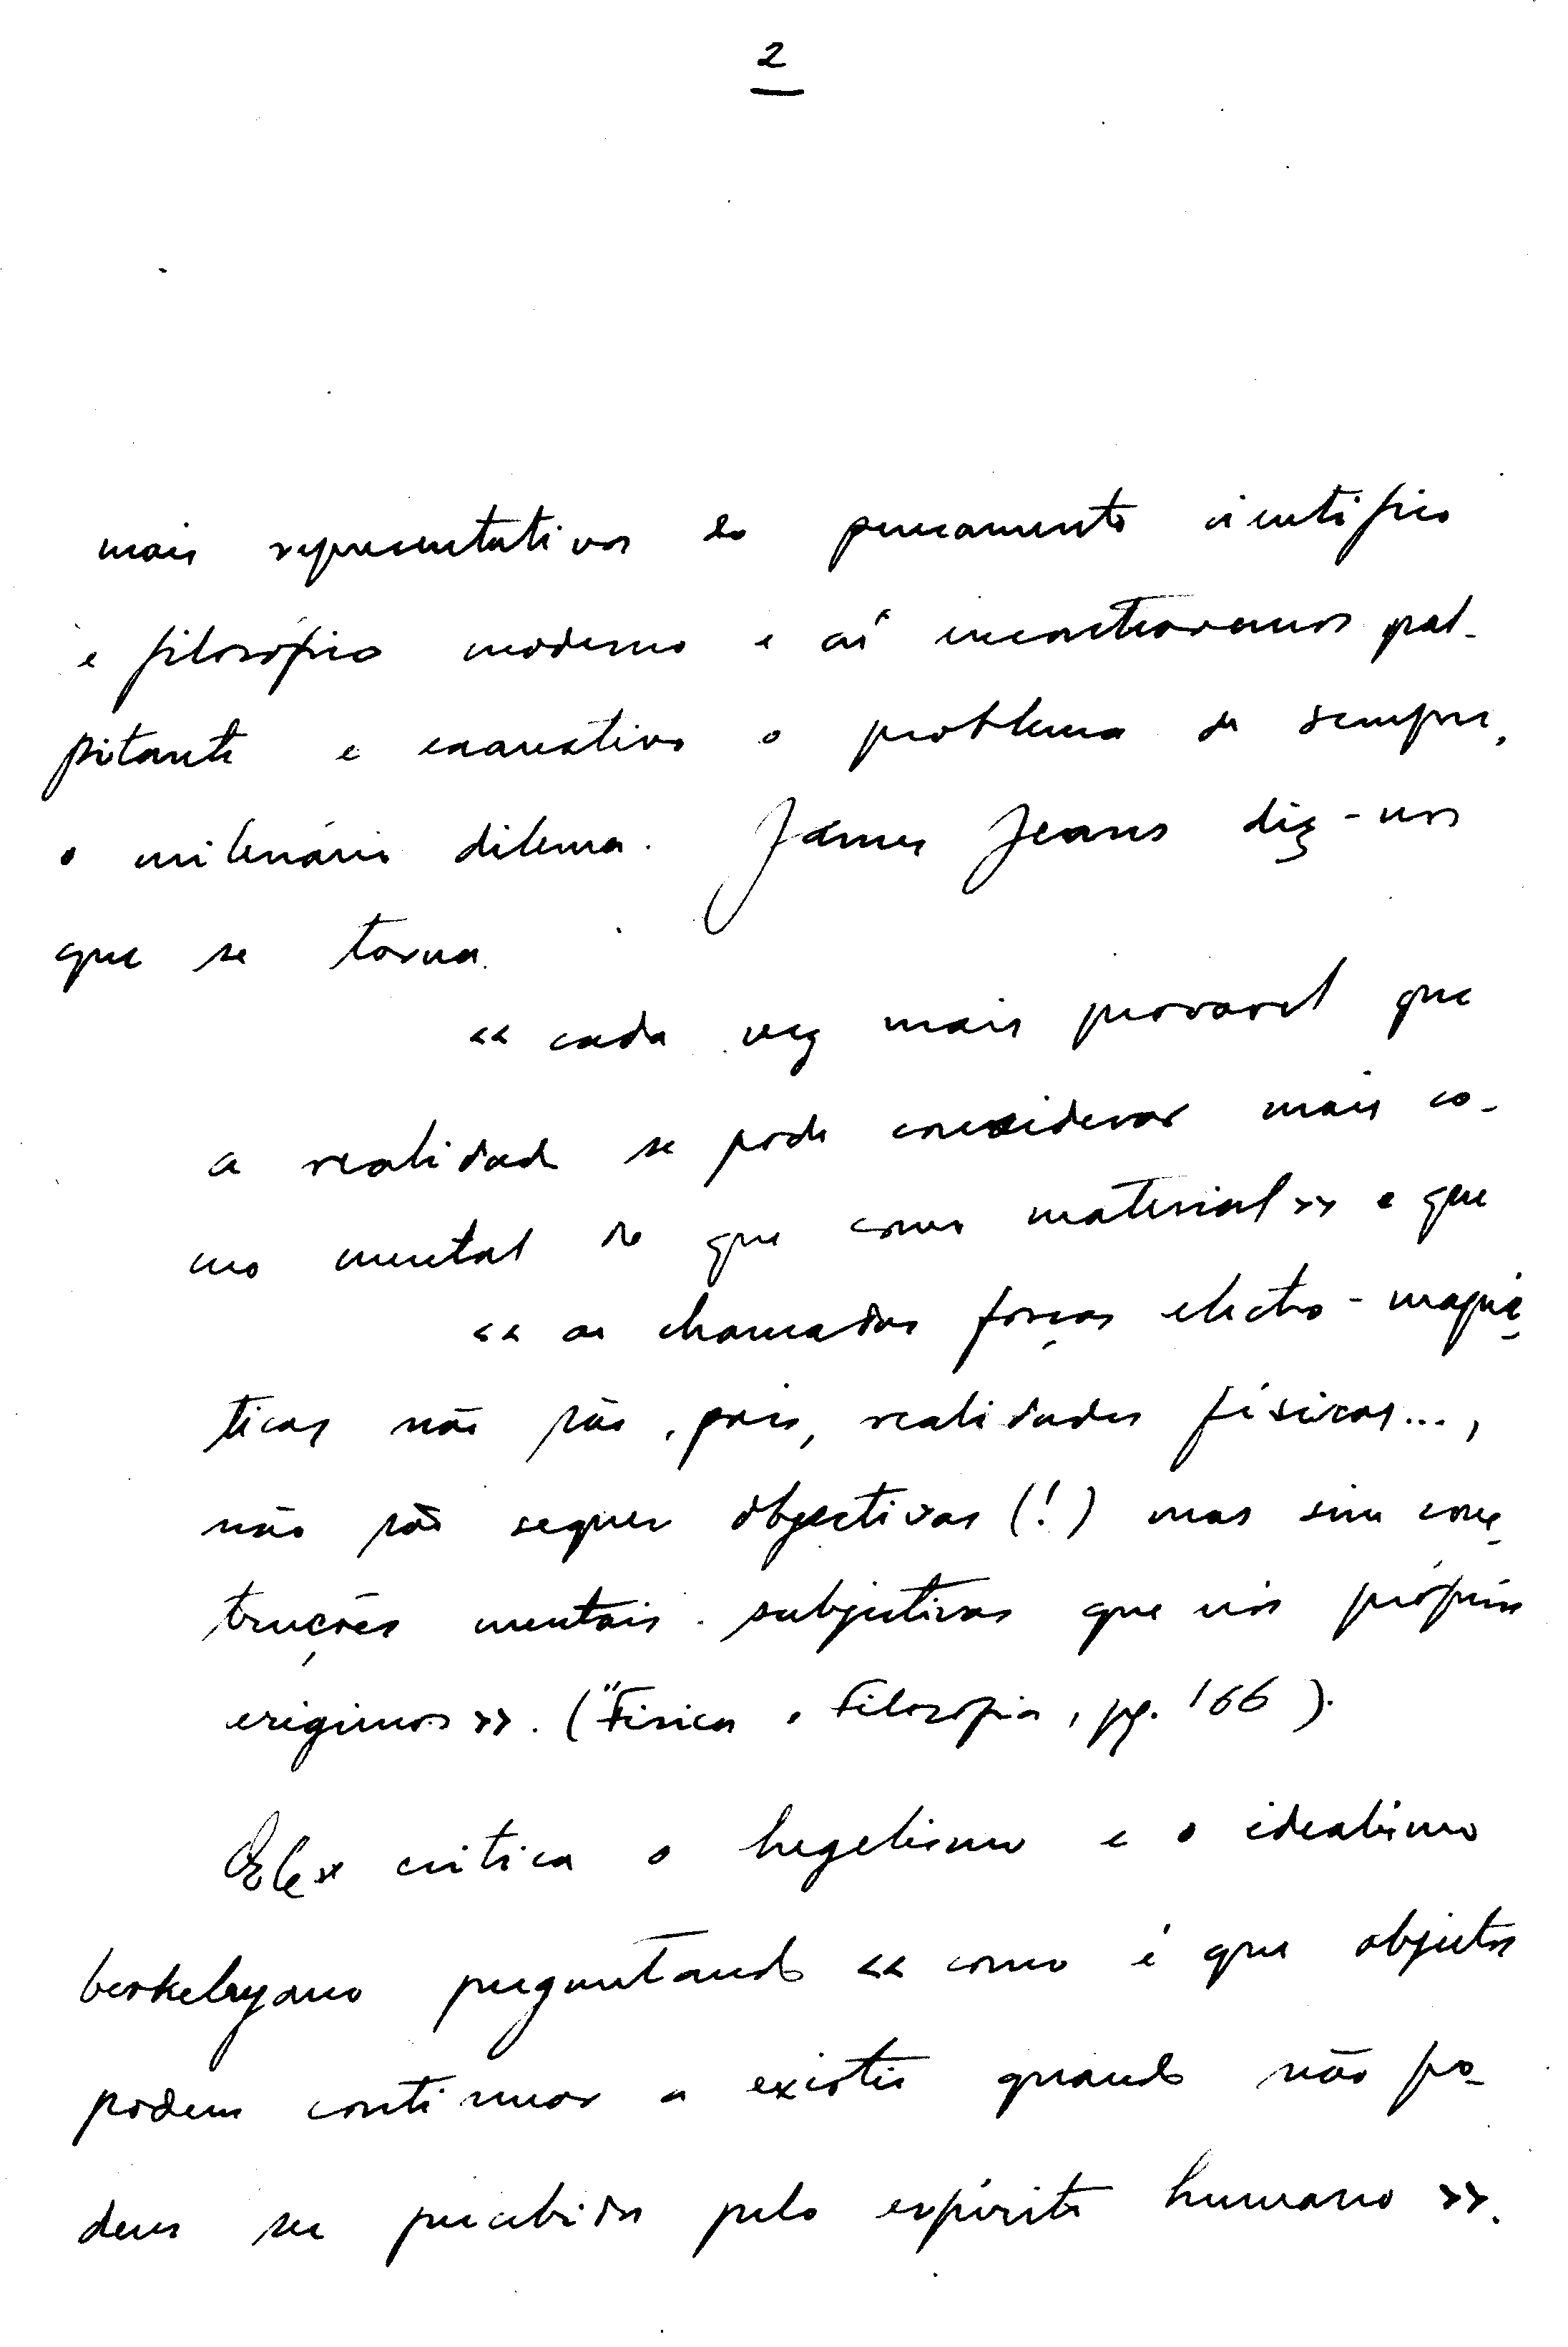 2
mais representativos do pensamento científico
e filosófico moderno e aí encontraremos pal-
pitante e exaustivo o problema de sempre,
o milenário dilema. James Jeans diz-nos
que se torna
«cada vez mais provavel que
a realidade se pode considerar mais co-
mo mental do que como material» e que
«as chamadas forças electro-magné
ticas não são, pois, realidades físicas...,
não são sequer objectivas (!) mas sim cons
truções mentais subjectivas que nós próprios
erigimos». ("Fisica e Filosofia, pg. 166).
Ele critica o hegelismo e o idealismo
berkeleyano perguntando «como é que objectos
podem continuar a existir quando não po-
dem ser percebidos pelo espírito humano».